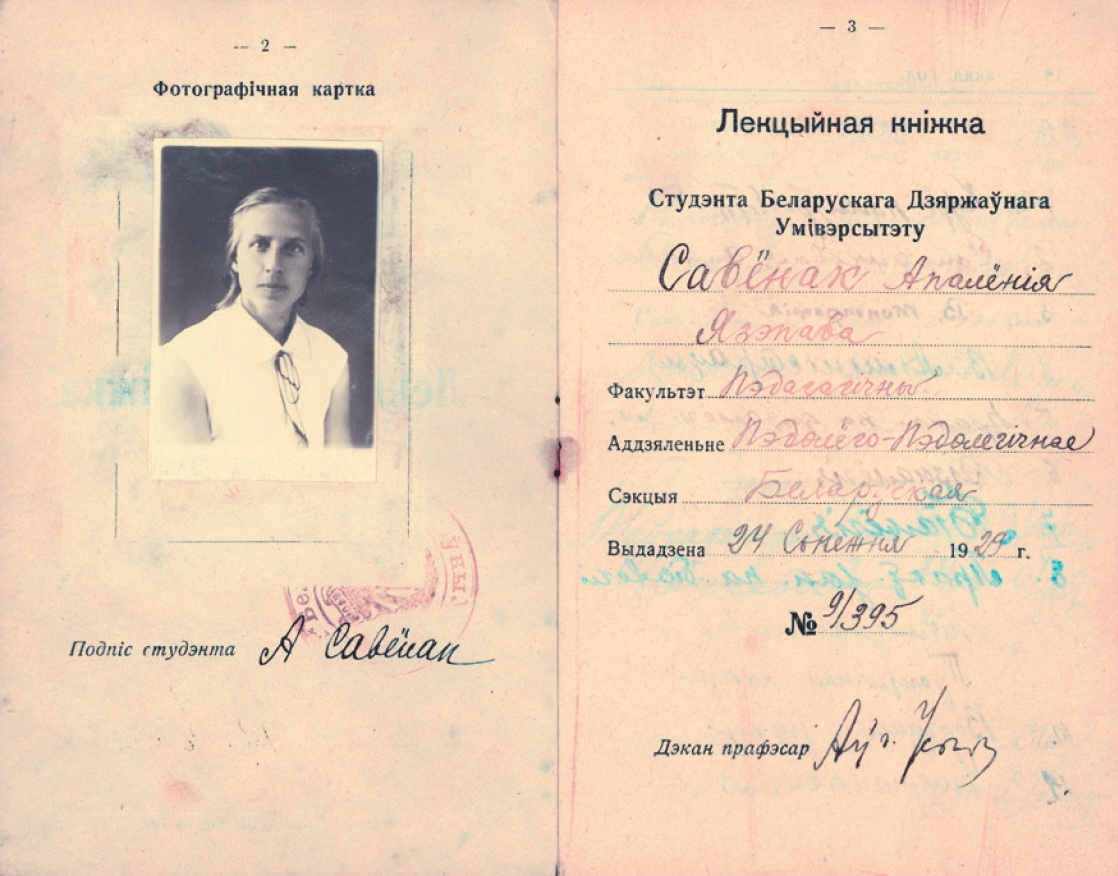 — 2 —
Фотографічная картка
Подпіс студэнта А Савёнак
— 3 —
Лекцыйная кніжка
Студэнта Беларускага Дзяржаўнага
Умівэрсытэту
Савёнак Апалёнія
Язэпава
Факультэт Пэдагагічны
Аддзяленьне Пэдолёго-Пэдолегічнае
Сэкцыя Беларуская
Выдадзена 24 Сьнежня 1929 г.
№ 9/395
Дэкан прафэсар